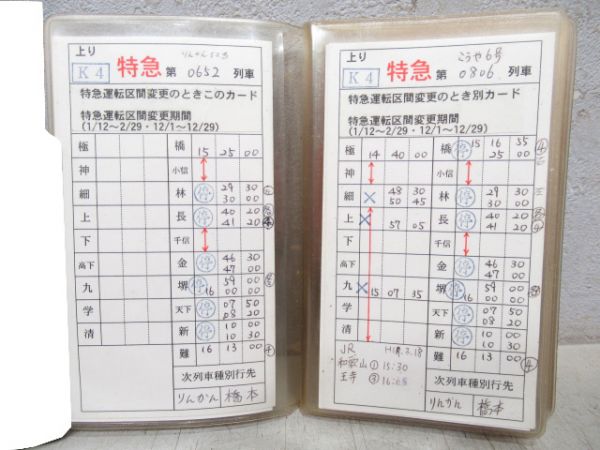 上り
りんかん52号
K4 特急 第 0652 列車
特急運転区間変更のときこのカード
特急運転区間変更期間
(1/12~2/29・12/1~12/29)
極 橋 15 25 00
神 小信
細 林 停 29 30
30 00
上 長 停 40 20
41 20
下 千信
高下 金 停 46 30
47 00
九 堺 停 59 00
16 00 00
学 天下 停 07 50
08 20
清 新 停 10 00
10 30
難 16 13 00
次列車種別行先
りんかん 橋本
上り
こうや6号
K4 特急 第 0806 列車
特急運転区間変更のとき別カード
特急運転区間変更期間
(1/12~2/29・12/1~12/29)
極 14 40 00 橋 停 15 16 55
25 00
神 小信
細 48 30 林 停 29 30
50 45 30 00
上 長 停 40 20
57 05 41 20
下 千信
高下 金 停 46 30
47 00
九 15 07 35 堺 停 59 00
16 00 00
学 天下 停 07 50
08 20
清 新 停 10 00
10 30
難 16 13 00
JR
和歌山 ① 15:30
王寺
次列車種別行先
りんかん 橋本